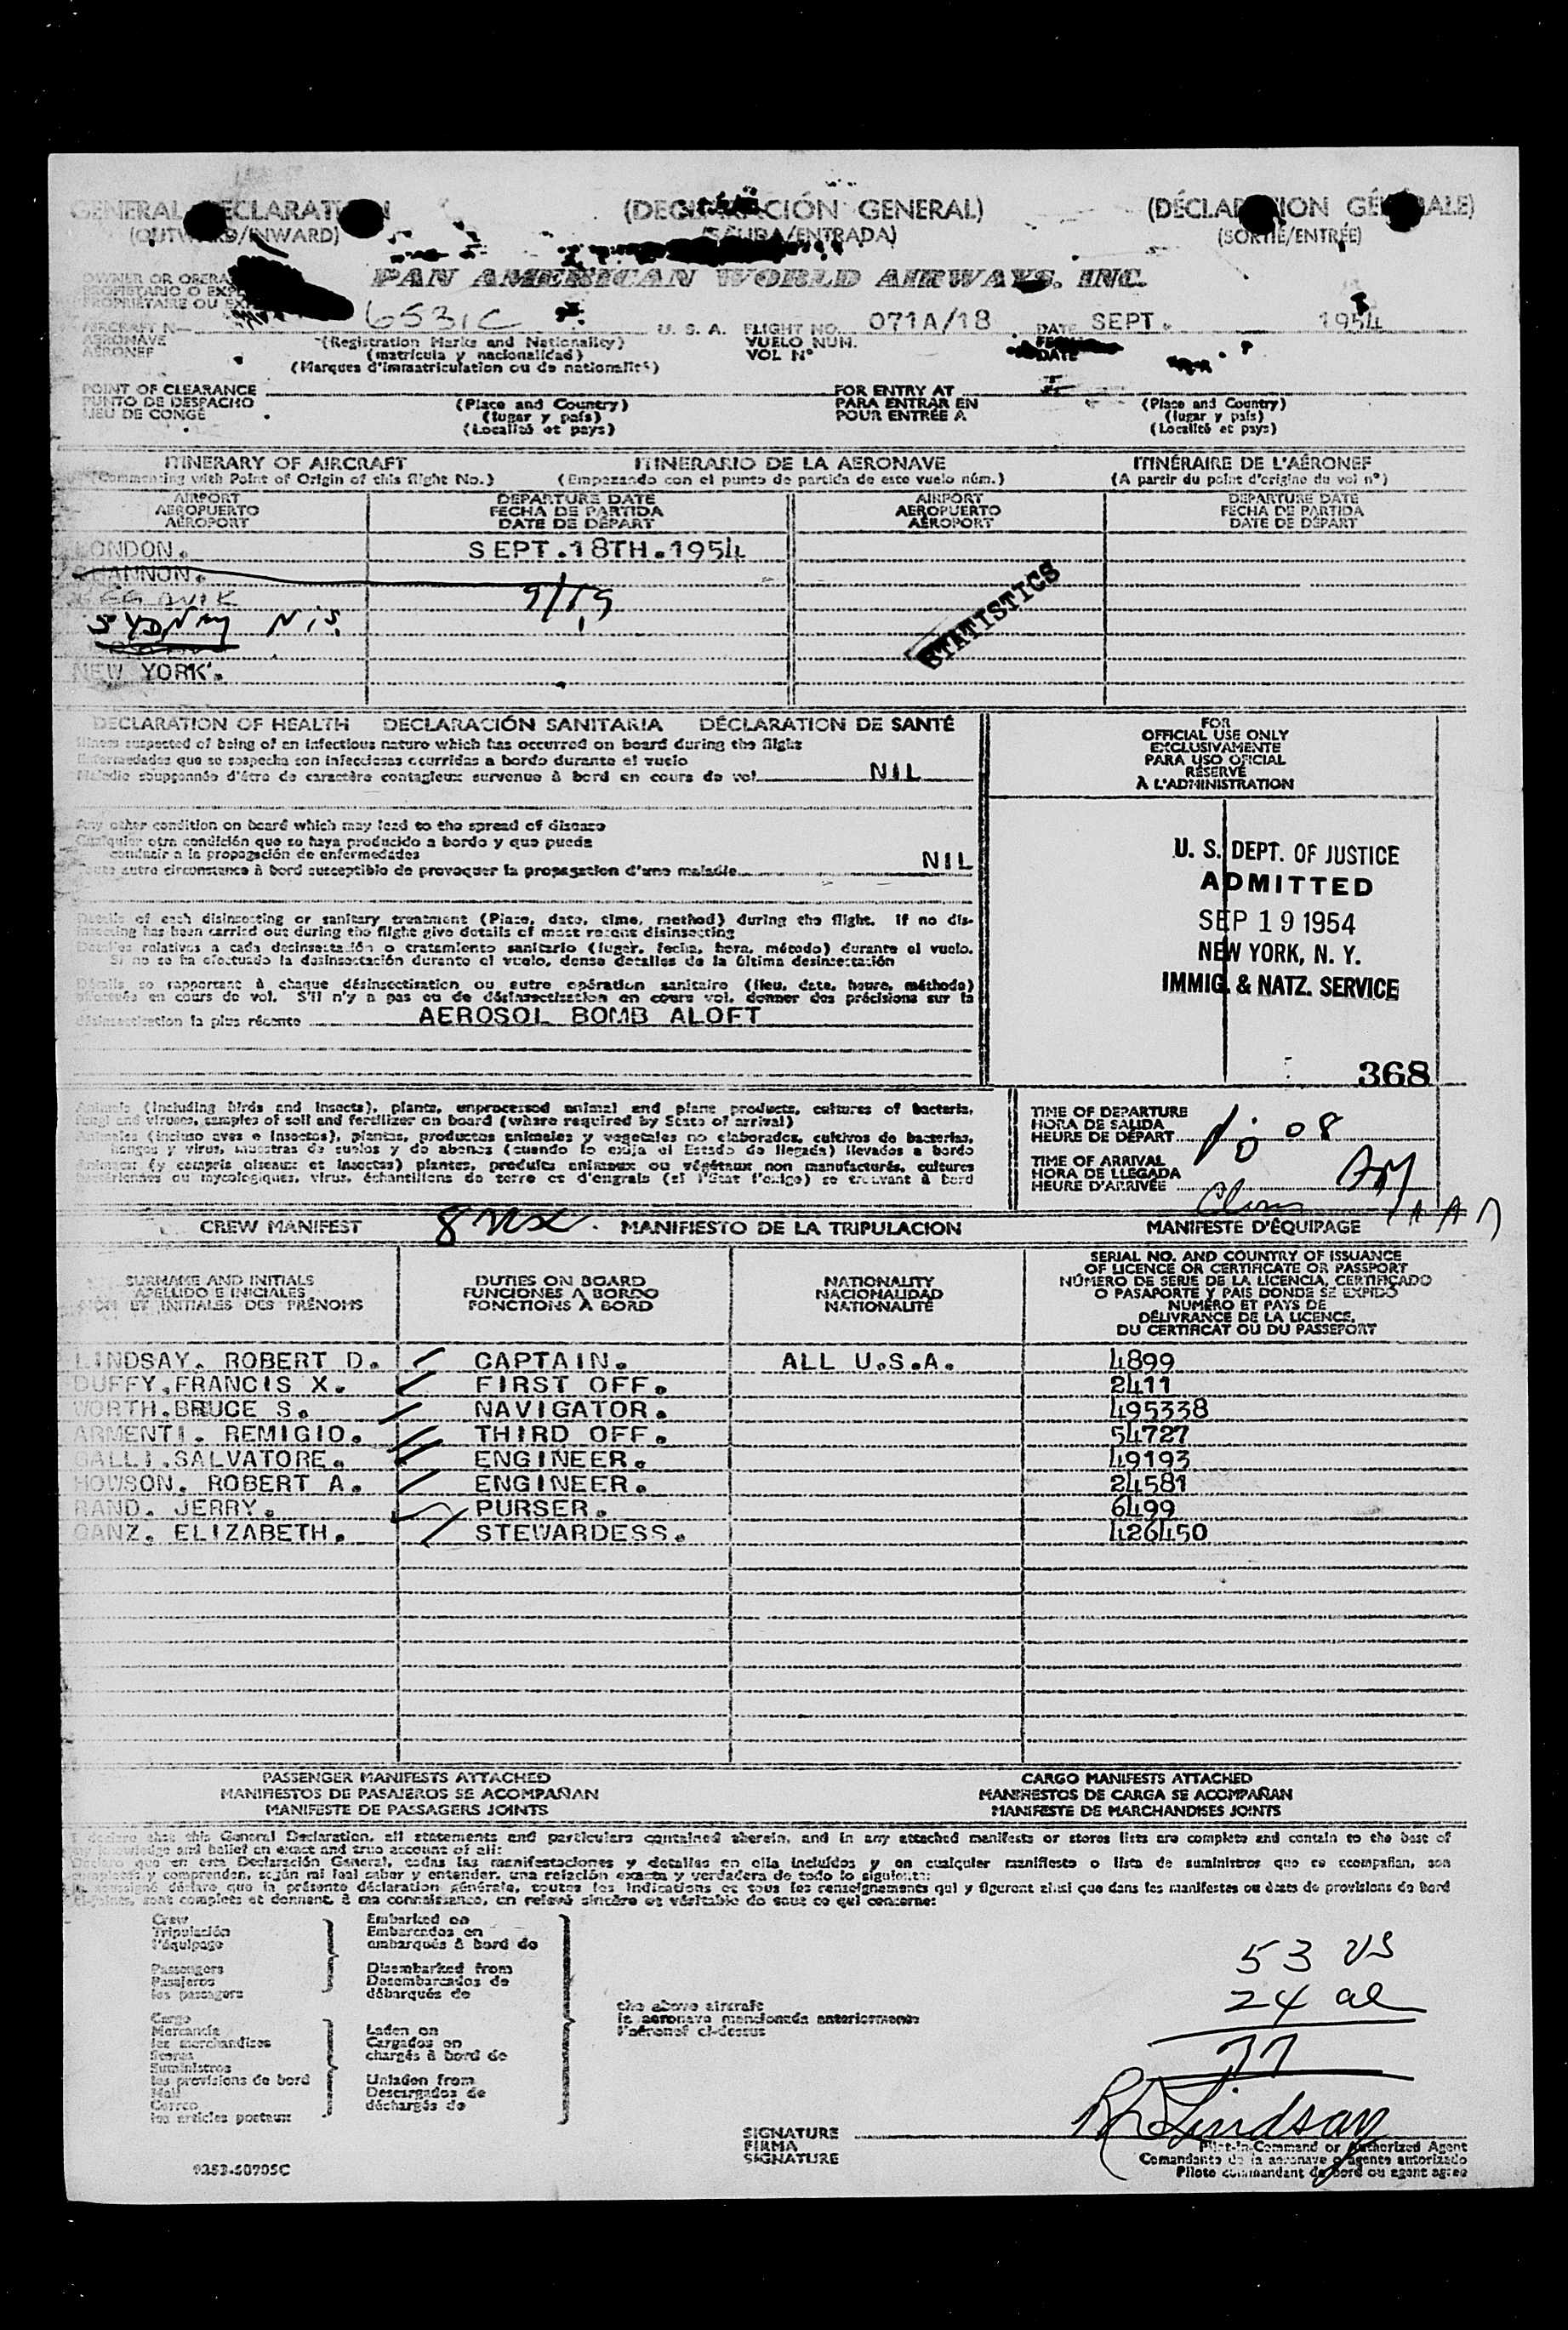 GENERAL DECLARATION (DECLARACIÓN GENERAL) (DÉCLARATION GÉNÉRALE)
(OUTWARD/INWARD) (SALIDA/ENTRADA) (SORTIE/ENTRÉE)
OWNER OR OPERA
PROPIETARIO O EXP
PROPRIÉTAIRE OU EX
PAN AMERICAN WORLD AIRWAYS, INC.
AIRCRAFT N 6531C U. S. A. FLIGHT NO. 071A/18 DATE SEPT. 1954
AERONAVE (Registration Marks and Nationality) VUELO NUM.
AÉRONEF (matrícula y nacionalidad) VOL N° DATE
(Marques d'immatriculation ou de nationalité)
POINT OF CLEARANCE FOR ENTRY AT
PUNTO DE DESPACHO (Place and Country) PARA ENTRAR EN (Place and Country)
LIEU DE CONGÉ (lugar y país) POUR ENTRÉE A (lugar y país)
(Localité et pays) (Localité et pays)
ITINERARY OF AIRCRAFT ITINERARIO DE LA AERONAVE ITINÉRAIRE DE L'AÉRONEF
(Commencing with Point of Origin of this flight No.) (Empezando con el punto de partida de este vuelo núm.) (A partir du point d'origine du vol n°)
AIRPORT DEPARTURE DATE AIRPORT DEPARTURE DATE
AEROPUERTO FECHA DE PARTIDA AEROPUERTO FECHA DE PARTIDA
AÉROPORT DATE DE DÉPART AÉROPORT DATE DE DÉPART
LONDON. SEPT.18TH.1954
SHANNON.
9/19
SYDNEY N.S.
NEW YORK.
STATISTICS
DECLARATION OF HEALTH DECLARACIÓN SANITARIA DÉCLARATION DE SANTÉ
Illness suspected of being of an infectious nature which has occurred on board during the flight
Enfermedades que se sospecha son infecciosas ocurridas a bordo durante el vuelo
Maladie soupçonnée d'être de caractère contagieux survenue à bord en cours de vol NIL
Any other condition on board which may lead to the spread of disease
Cualquier otra condición que se haya producido a bordo y que pueda
conducir a la propagación de enfermedades
Toute autre circonstance à bord susceptible de provoquer la propagation d'une maladie NIL
Details of each disinsecting or sanitary treatment (Place, date, time, method) during the flight. If no dis-
insecting has been carried out during the flight give details of most recent disinsecting
Detalles relativos a cada desinsectación o tratamiento sanitario (lugar, fecha, hora, método) durante el vuelo.
Si no se ha efectuado la desinsectación durante el vuelo, dense detalles de la última desinsectación
Détails se rapportant à chaque désinsectisation ou autre opération sanitaire (lieu, date, heure, méthode)
effectués en cours de vol. S'il n'y a pas eu de désinsectisation en cours vol, donner des précisions sur la
désinsectisation la plus récente AEROSOL BOMB ALOFT
FOR
OFFICIAL USE ONLY
EXCLUSIVAMENTE
PARA USO OFICIAL
RÉSERVÉ
À L'ADMINISTRATION
U. S. DEPT. OF JUSTICE
ADMITTED
SEP 19 1954
NEW YORK, N. Y.
IMMIG. & NATZ. SERVICE
368
Animals (including birds and insects), plants, unprocessed animal and plane products, cultures of bacteria,
fungi and viruses, samples of soil and fertilizer on board (where required by State of arrival)
Animales (incluso aves e insectos), plantas, productos animales y vegetales no elaborados, cultivos de bacterias,
hongos y virus, muestras de suelos y de abonos (cuando lo exija el Estado de llegada) llevados a bordo
Animaux (y compris oiseaux et insectes) plantes, produits animaux ou végétaux non manufacturés, cultures
bactériennes ou mycologiques, virus, échantillons de terre et d'engrais (si l'État l'exige) se trouvant à bord
TIME OF DEPARTURE
HORA DE SALIDA
HEURE DE DÉPART
TIME OF ARRIVAL
HORA DE LLEGADA
HEURE D'ARRIVÉE
AM
CREW MANIFEST MANIFIESTO DE LA TRIPULACION MANIFESTE D'ÉQUIPAGE
SURNAME AND INITIALS DUTIES ON BOARD NATIONALITY
APELLIDO E INICIALES FUNCIONES A BORDO NACIONALIDAD
NOM ET INITIALES DES PRÉNOMS FONCTIONS À BORD NATIONALITÉ
SERIAL NO. AND COUNTRY OF ISSUANCE
OF LICENCE OR CERTIFICATE OR PASSPORT
NÚMERO DE SERIE DE LA LICENCIA, CERTIFICADO
O PASAPORTE Y PAIS DONDE SE EXPIDÓ
NUMÉRO ET PAYS DE
DÉLIVRANCE DE LA LICENCE,
DU CERTIFICAT OU DU PASSEPORT
LINDSAY. ROBERT D. CAPTAIN. ALL U.S.A. 4899
DUFFY.FRANCIS X. FIRST OFF. 2411
WORTH.BRUCE S. NAVIGATOR. 495338
ARMENTI. REMIGIO. THIRD OFF. 54727
GALLI.SALVATORE. ENGINEER. 49193
HOWSON. ROBERT A. ENGINEER. 24581
RAND. JERRY. PURSER. 6499
GANZ. ELIZABETH. STEWARDESS. 426450
PASSENGER MANIFESTS ATTACHED CARGO MANIFESTS ATTACHED
MANIFIESTOS DE PASAJEROS SE ACOMPAÑAN MANIFIESTOS DE CARGA SE ACOMPAÑAN
MANIFESTE DE PASSAGERS JOINTS MANIFESTE DE MARCHANDISES JOINTS
I declare that this General Declaration, all statements and particulars contained therein, and in any attached manifests or stores lists are complete and contain to the best of
my knowledge and belief an exact and true account of all:
Declaro que en esta Declaración General, todas las manifestaciones y detalles en ella incluídos y en cualquier manifiesto o lista de suministros que se acompañan, son
completos y comprenden, según mi leal saber y entender, una relación exacta y verdadera de todo lo siguiente:
Je soussigné déclare que la présente déclaration générale, toutes les indications et tous les renseignements qui y figurent ainsi que dans les manifestes ou états de provisions de bord
ci-joints, sont complets et donnent, à ma connaissance, un relevé sincère et véritable de tout ce qui concerne:
Crew Embarked on
Tripulación Embarcados en
l'équipage embarqués à bord de
Passengers Disembarked from
Pasajeros Desembarcados de
les passagers débarqués de
the above aircraft
la aeronave mencionada anteriormente
l'aéronef ci-dessus
Cargo
Mercancía Laden on
les marchandises Cargados en
Stores chargés à bord de
Suministros
les provisions de bord Unladen from
Mail Descargados de
Correo déchargés de
les articles postaux
53 US
24 al
77
R D Lindsay
SIGNATURE
FIRMA
SIGNATURE
Pilot-in-Command or Authorized Agent
Comandante de la aeronave o agente autorizado
Pilote commandant de bord ou agent agréé